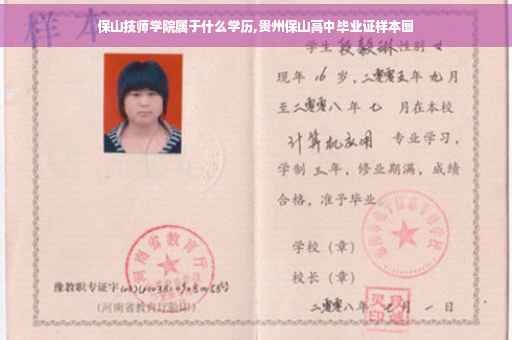 保山技师学院属于什么学历,贵州保山高中毕业证样本图
样本
学生段毅琳性别女
现年16岁,二零零五年九月
至二零零八年七月在本校
计算机应用 专业学习,
学制三年,修业期满,成绩
合格,准予毕业。
河南省教育厅
学校(章)
校长(章)
豫教职专证字
(河南省教育厅验印)
二零零八年 月一日